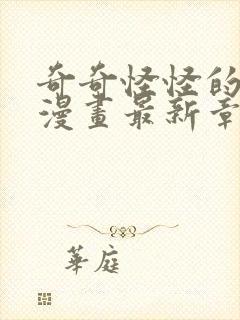 奇奇怪怪的
漫畫最新章
華庭